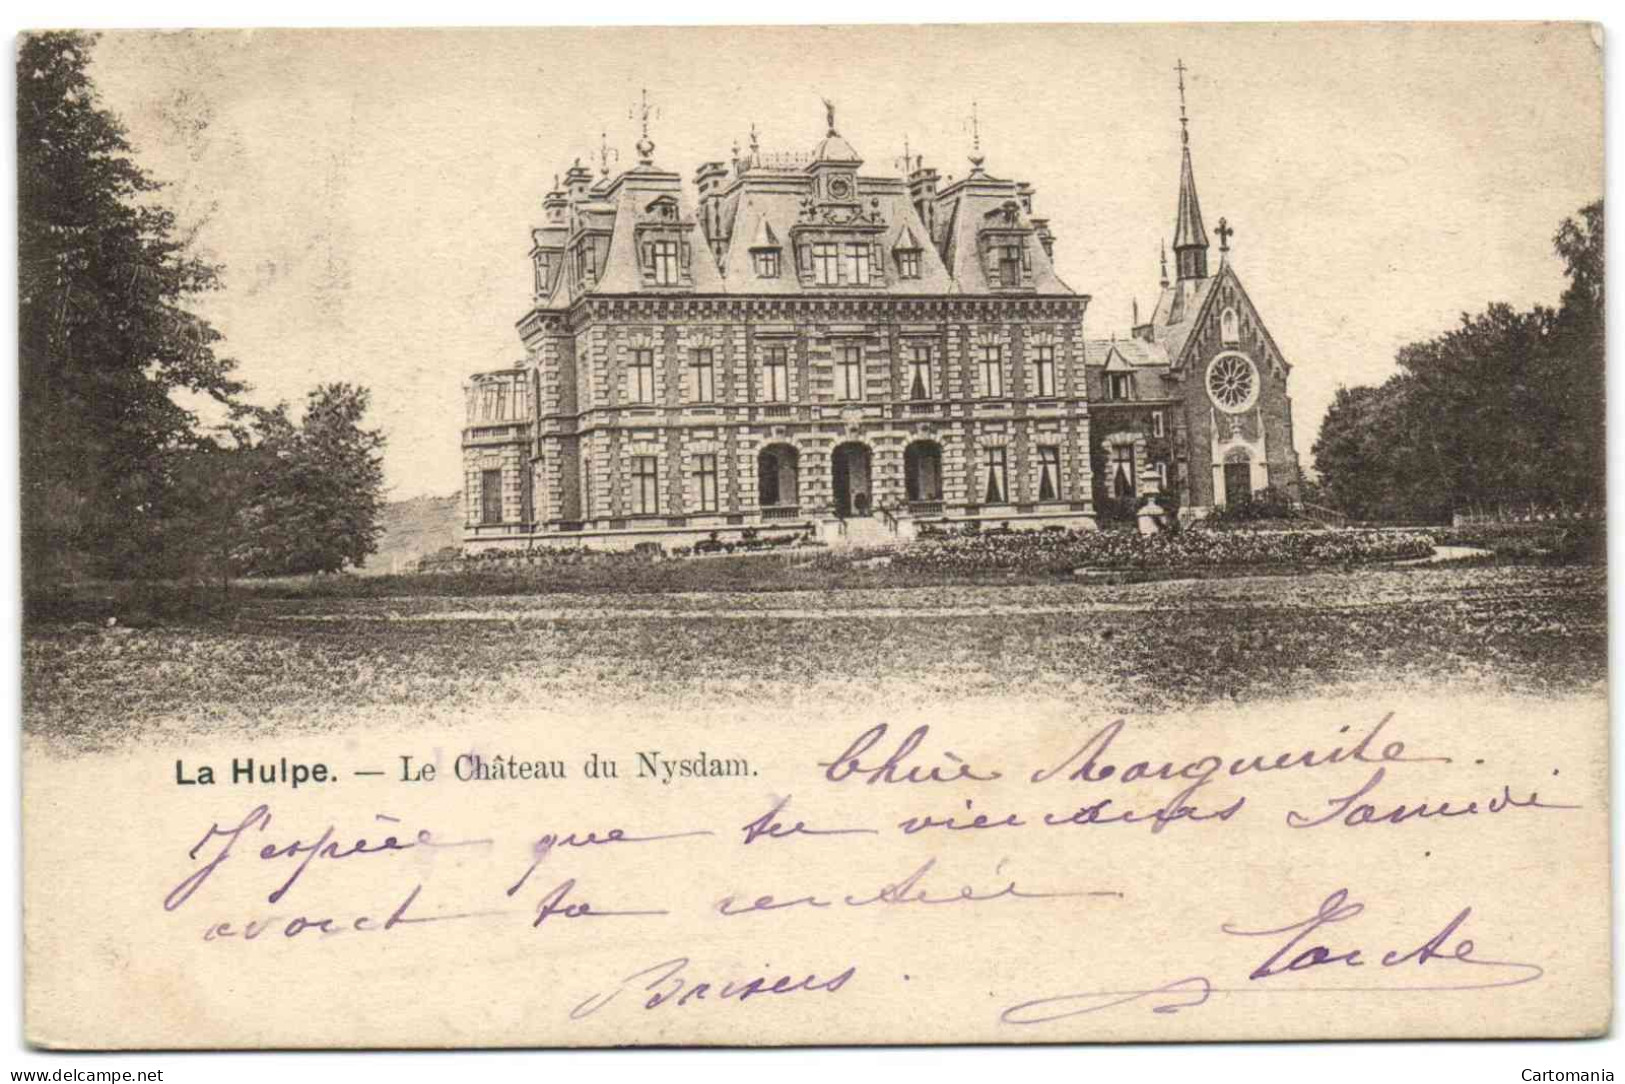 La Hulpe. — Le Château du Nysdam.
Chère Marguerite.
J'espère que tu viendras Samedi
avant ta rentrée
Baisers.
cartomania.be/en
Cartomania